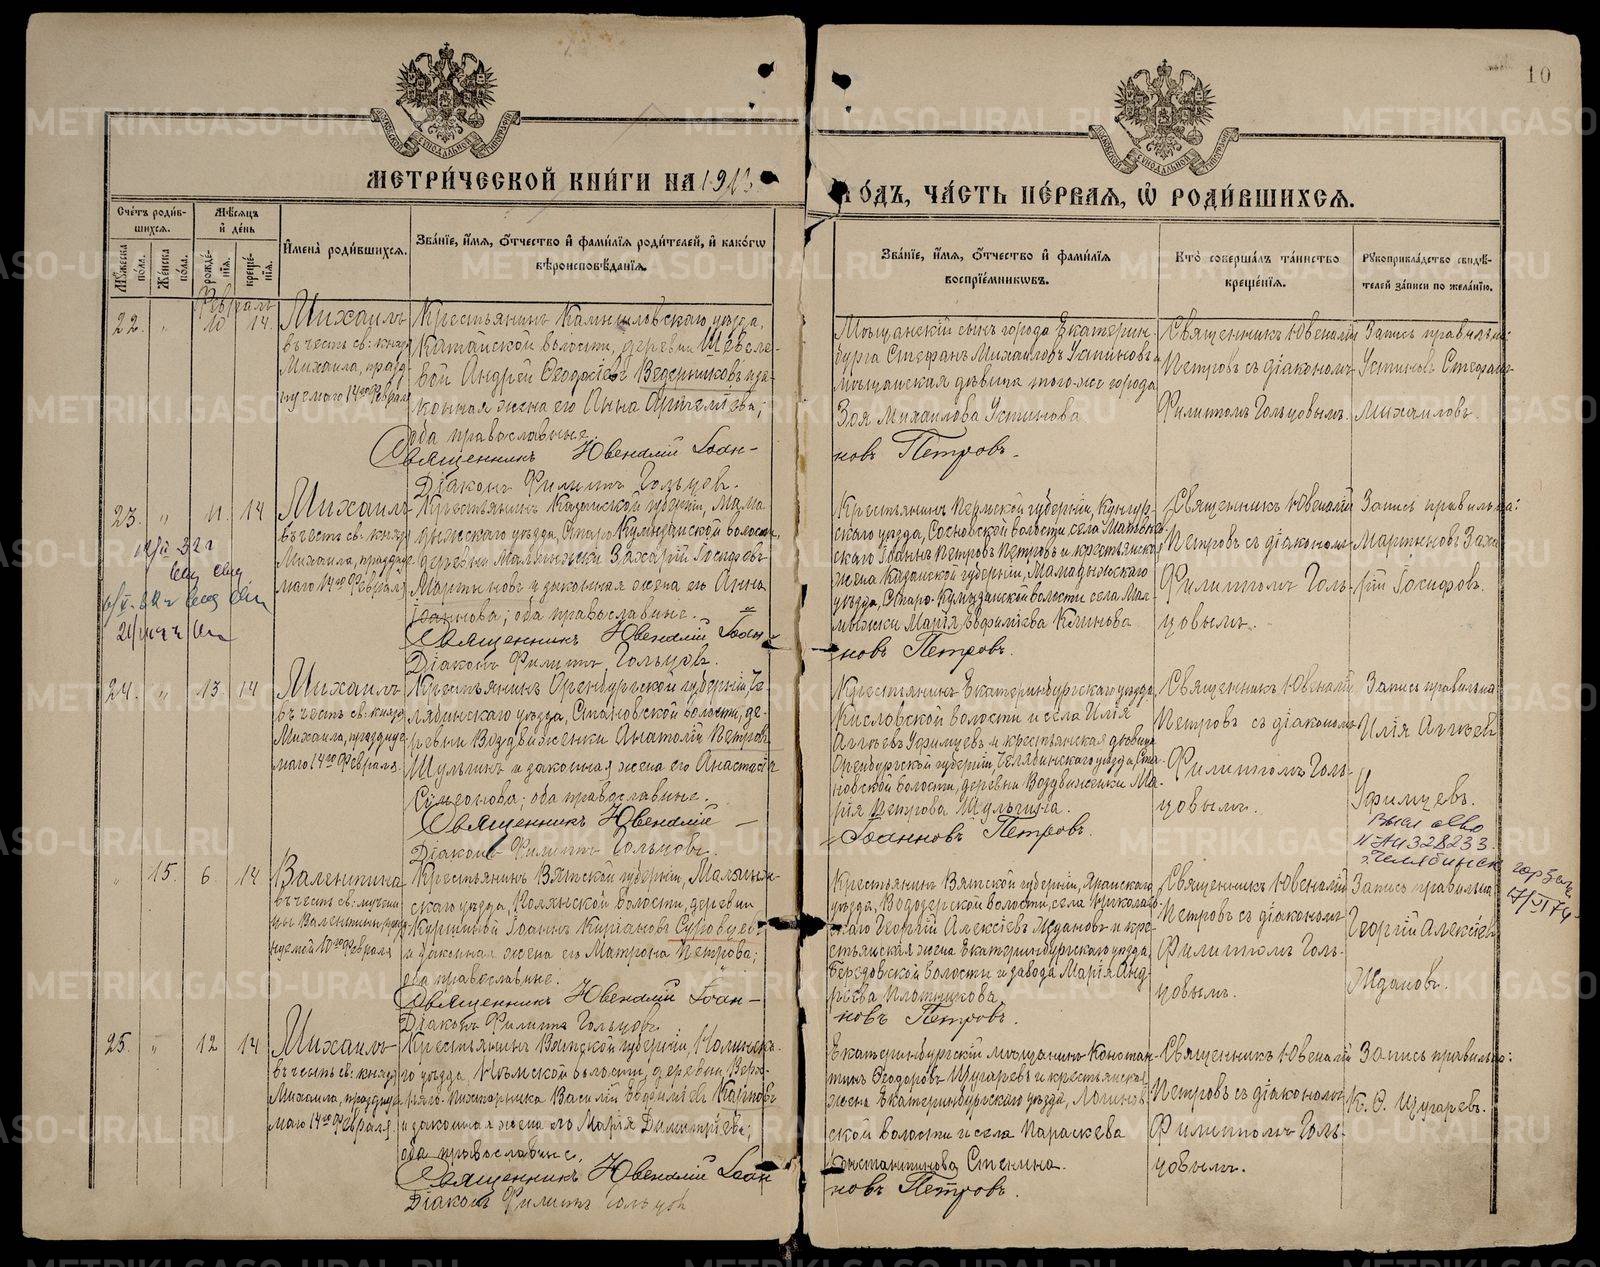 10
МЕТРИ́ЧЕСКОЙ КНИ́ГИ НА 1913
ГО́ДЪ, ЧА́СТЬ ПЕ́РВАѦ, Ѡ РОДИ́ВШИХСѦ.
Сче́тъ роди́в-
шихсѧ.
Мѣ́сѧцъ
и҆ де́нь
Мꙋ́жеска по́ла.
Же́нска по́ла.
рожде́-
нїѧ.
креще́-
нїѧ.
И҆мена̀ роди́вшихсѧ.
Зва́нїе, и҆́мѧ, ѻ҆́тчество и҆ фами́лїѧ роди́телей, и҆ како́гѡ
вѣроисповѣ́данїѧ.
Зва́нїе, и҆́мѧ, ѻ҆́тчество и҆ фами́лїѧ
воспрїе́мникѡвъ.
Кто̀ соверша́лъ та́инство
креще́нїѧ.
Рꙋкоприкла́дство свидѣ́-
телей за́писи по жела́нїю.
Февраль
22. " 10 14.
Михаилъ
въ честь св: князя
Михаила, празд-
нуемаго 14го Февраля
Крестьянинъ Камышловскаго уѣзда,
Катайской волости, деревни Шевеле-
вой Андрей Ѳеодосіевъ Ведерниковъ и за-
конная жена его Анна Артеміева;
оба православные.
Священникъ Ювеналій Іоан-
Діаконъ Филиппъ Гольцовъ.
Мѣщанскій сынъ города Екатерин-
бурга Стефанъ Михаиловъ Устиновъ и
мѣщанская дѣвица того-же города
Зоя Михаилова Устинова.
новъ Петровъ.
Священникъ Ювеналій
Петровъ съ діакономъ
Филиппомъ Гольцовымъ.
Запись правильна:
Устиновъ Стефанъ
Михаиловъ.
23. " 11. 14
Михаилъ
въ честь св: князя
Михаила, празднуе
маго 14го Февраля
Крестьянинъ Казанской губерніи, Мама
дышскаго уѣзда, Старо-Кумазанской волости,
деревни Малмыжки Захарій Іосифовъ
Мартыновъ и законная жена его Анна
Іоаннова; оба православные.
Священникъ Ювеналій Іоан-
Діаконъ Филиппъ Гольцовъ.
Крестьянинъ Пермской губерніи, Кунгур-
скаго уѣзда, Сосновской волости, села
скаго Іоаннъ Петровъ Петровъ и крестьянская
жена Казанской губерніи, Мамадышскаго
уѣзда, Старо-Кумазанской волости села Мал-
мыжки Марія Евфиміева Климова
новъ Петровъ.
Священникъ Ювеналій
Петровъ съ діакономъ
Филиппомъ Голь-
цовымъ.
Запись правильна:
Мартыновъ Заха
рій Іосифовъ.
24. " 13. 14
Михаилъ
въ честь св: князя
Михаила, празднуе
маго 14го Февраля.
Крестьянинъ Оренбургской губерніи, Че-
лябинскаго уѣзда, Становской волости, де-
ревни Воздвиженки Анатолій Петровъ
Шульгинъ и законная жена его Анастасія
Симеонова; оба православные.
Священникъ Ювеналій
Діаконъ Филиппъ Гольцовъ.
Крестьянинъ Екатеринбургскаго уѣзда,
Кисловской волости и села Илія
Аггѣевъ Уфимцевъ и крестьянская дѣвица
Оренбургской губерніи Челябинскаго уѣзда, Ста-
новской волости, деревни Воздвиженки Ма-
рія Петрова Шульгина.
Іоанновъ Петровъ.
Священникъ Ювеналій
Петровъ съ діакономъ
Филиппомъ Голь-
цовымъ.
Запись правильна
Илія Аггѣевъ
Уфимцевъ.
328233
г. Челябинск
" 15. 6. 14
Валентина
въ честь св: мучени
цы Валентины, празд
нуемой 10го Февраля
Крестьянинъ Вятской губерніи, Малмыж-
скаго уѣзда, волости, деревни
Іоаннъ Суровцевъ
и законная жена его Матрона Петрова;
оба православные.
Священникъ Ювеналій Іоан-
Діаконъ Филиппъ Гольцовъ.
Крестьянинъ Вятской губерніи, Яранскаго
уѣзда, Водозерской волости, села Николаев-
скаго Георгій Алексіевъ Ждановъ и кре-
стьянская жена Екатеринбургскаго уѣзда,
Березовской волости и завода Марія Анд-
реева Плотникова.
новъ Петровъ.
Священникъ Ювеналій
Петровъ съ діакономъ
Филиппомъ Голь-
цовымъ.
Запись правильна:
Георгій Алексіевъ
Ждановъ.
25. " 12 14
Михаилъ
въ честь св: князя
Михаила, празднуе
маго 14го Февраля.
Крестьянинъ Вятской губерніи,
го уѣзда, волости, деревни Верх-
Василій Евфиміевъ
и законная жена его Марія Димитріева;
оба православные.
Священникъ Ювеналій Іоан
Діаконъ Филиппъ Гольцовъ
Екатеринбургскій мѣщанинъ Констан-
тинъ Ѳеодоровъ Щугаревъ и крестьянская
жена Екатеринбургскаго уѣзда, Логинов-
ской волости и села Параскева
Константинова Стенина.
новъ Петровъ.
Священникъ Ювеналій
Петровъ съ діакономъ
Филиппомъ Голь-
цовымъ.
Запись правильна:
К. Ѳ. Щугаревъ.
METRIKI.GASO-URAL.RU